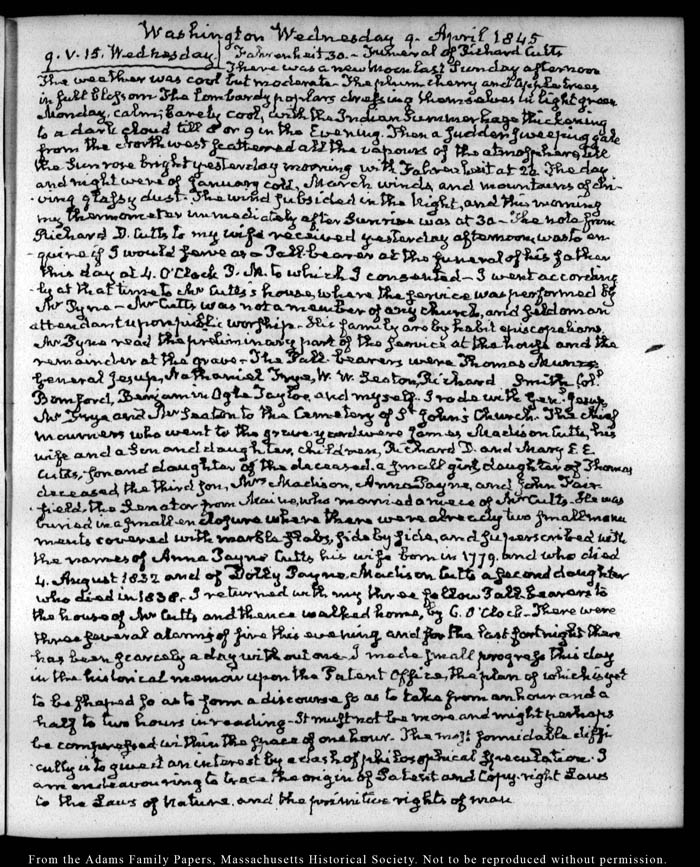 Washington Wednesday 9. April 1845
9. V. 15. Wednesday. Fahrenheit 30. – Funeral of Richard Cutts
There was a new Moon last Sunday afternoon
The weather was cool but moderate. The plum cherry and apple trees
in full blossom. The Lombardy poplars dressing themselves in light green
Monday, calm, barely cool, with the Indian Summer haze thickening
to a dark cloud till 8 or 9 in the Evening. Then a sudden sweeping gale
from the North west scattered all the vapours of the atmosphere, till
the Sun rose bright yesterday morning with Fahrenheit at 22. The day
and night were of January cold, March winds, and mountains of dri-
ving glassy dust. The wind subsided in the Night, and this morning
my thermometer immediately after Sunrise was at 30 – The note from
Richard D. Cutts to my wife received yesterday afternoon, was to en-
quire if I would serve as a Pall-bearer at the funeral of his father
this day at 4. O'Clock P. M. to which I consented – I went according
ly at that time to Mr Cutts's house, where the service was performed by
Mr Pyne – Mr Cutts was not a member of any church, and seldom an
attendant upon public worship – His family are by habit episcopalians.
Mr Pyne read the preliminary part of the service at the house and the
remainder at the grave – The Pall-bearers were Thomas Munroe
General Jesup, Nathaniel Frye, W. W. Seaton, Richard Smith Col.
Bomford, Benjamin Ogle Tayloe, and myself. I rode with Genl. Jesup,
Mr Frye and Mr Seaton to the Cemetery of St John's Church. The chief
mourners who went to the grave yard were James Madison Cutts, his
wife and a Son and daughter, children, Richard D. and Mary E. E.
Cutts, son and daughter of the deceased. a small girl daughter of Thomas
deceased, the third son, Mrs Madison, Anna Payne, and John Fair-
field, the Senator from Maine, who married a niece of Mr Cutts – He was
buried in a small enclosure where there were already two small monu
ments covered with marble slabs, side by side, and superscribed with
the names of Anna Payne Cutts his wife born in 1779. and who died
4. August 1832 and of Dolly Payne Madison Cutts a second daughter
who died in 1838. I returned with my three fellow Pall bearers to
the house of Mr Cutts and thence walked home, by 6. O'Clock – There were
three several alarms of fire this evening and for the last fortnight there
has been scarcely a day without one – I made small progress this day
in the historical memoir upon the Patent Office, the plan of which is yet
to be shaped so as to form a discourse so as to take from an hour and a
half to two hours in reading – It must not be more and might perhaps
be compressed within the space of one hour. The most formidable diffi-
culty is to give it an interest by a dash of philosophical speculation. I
am endeavouring to trace the origin of Patent and Copy-right Laws
to the Laws of Nature, and the primitive rights of man
From the Adams Family Papers, Massachusetts Historical Society. Not to be reproduced without permission.